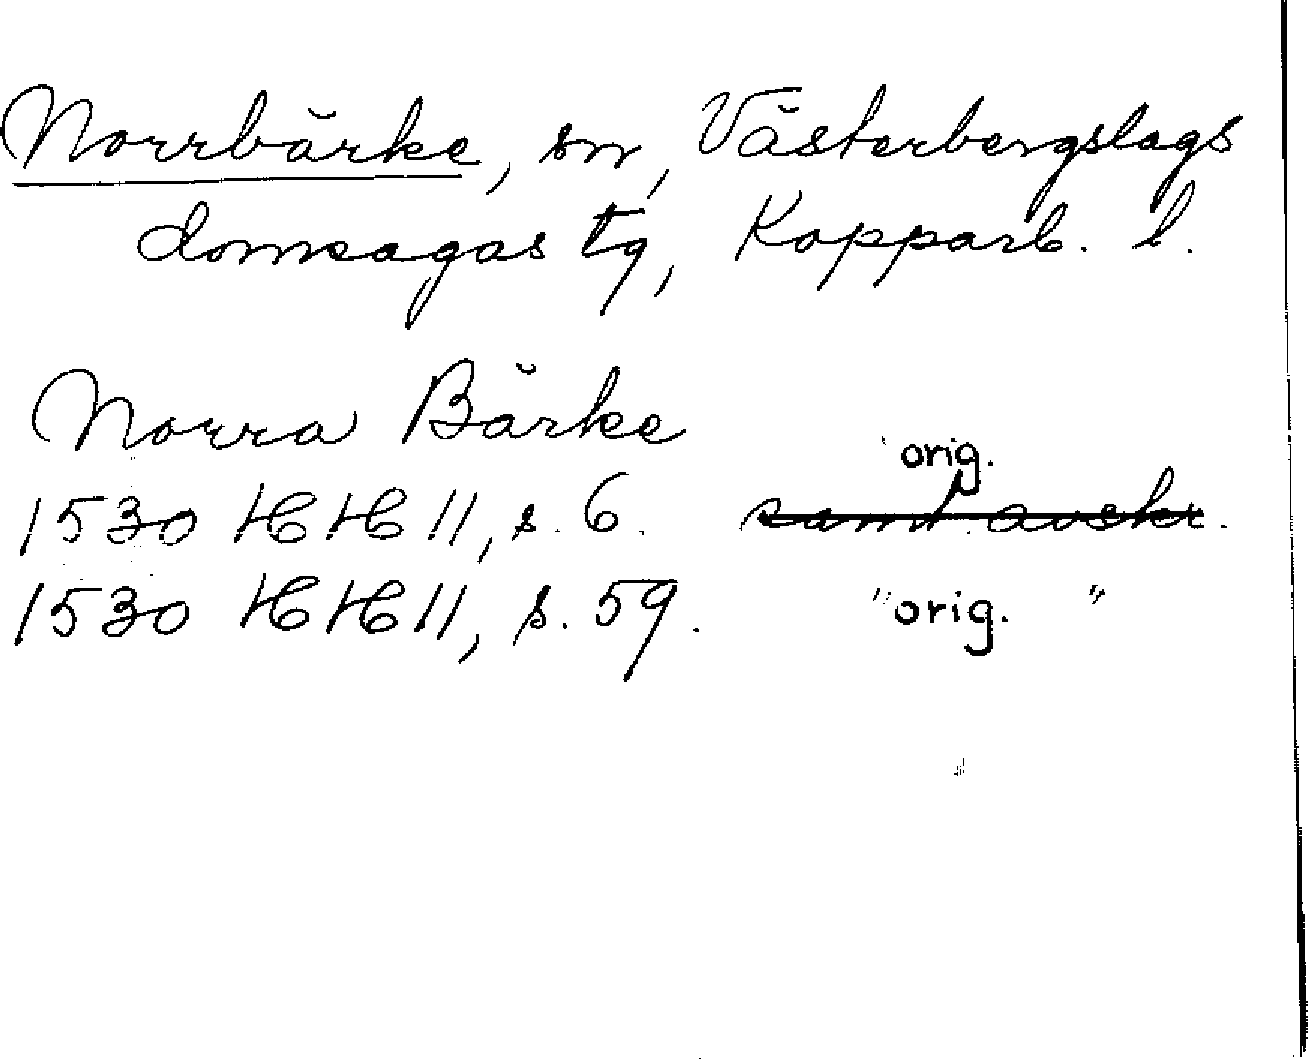 Norrbärke, sn, Västerbergslags
domsagas tg, Kopparb. l.
Norra Bärke
orig.
1530 HH II, s. 6. samt. avskr.
1530 HH II, s. 59. " orig. "